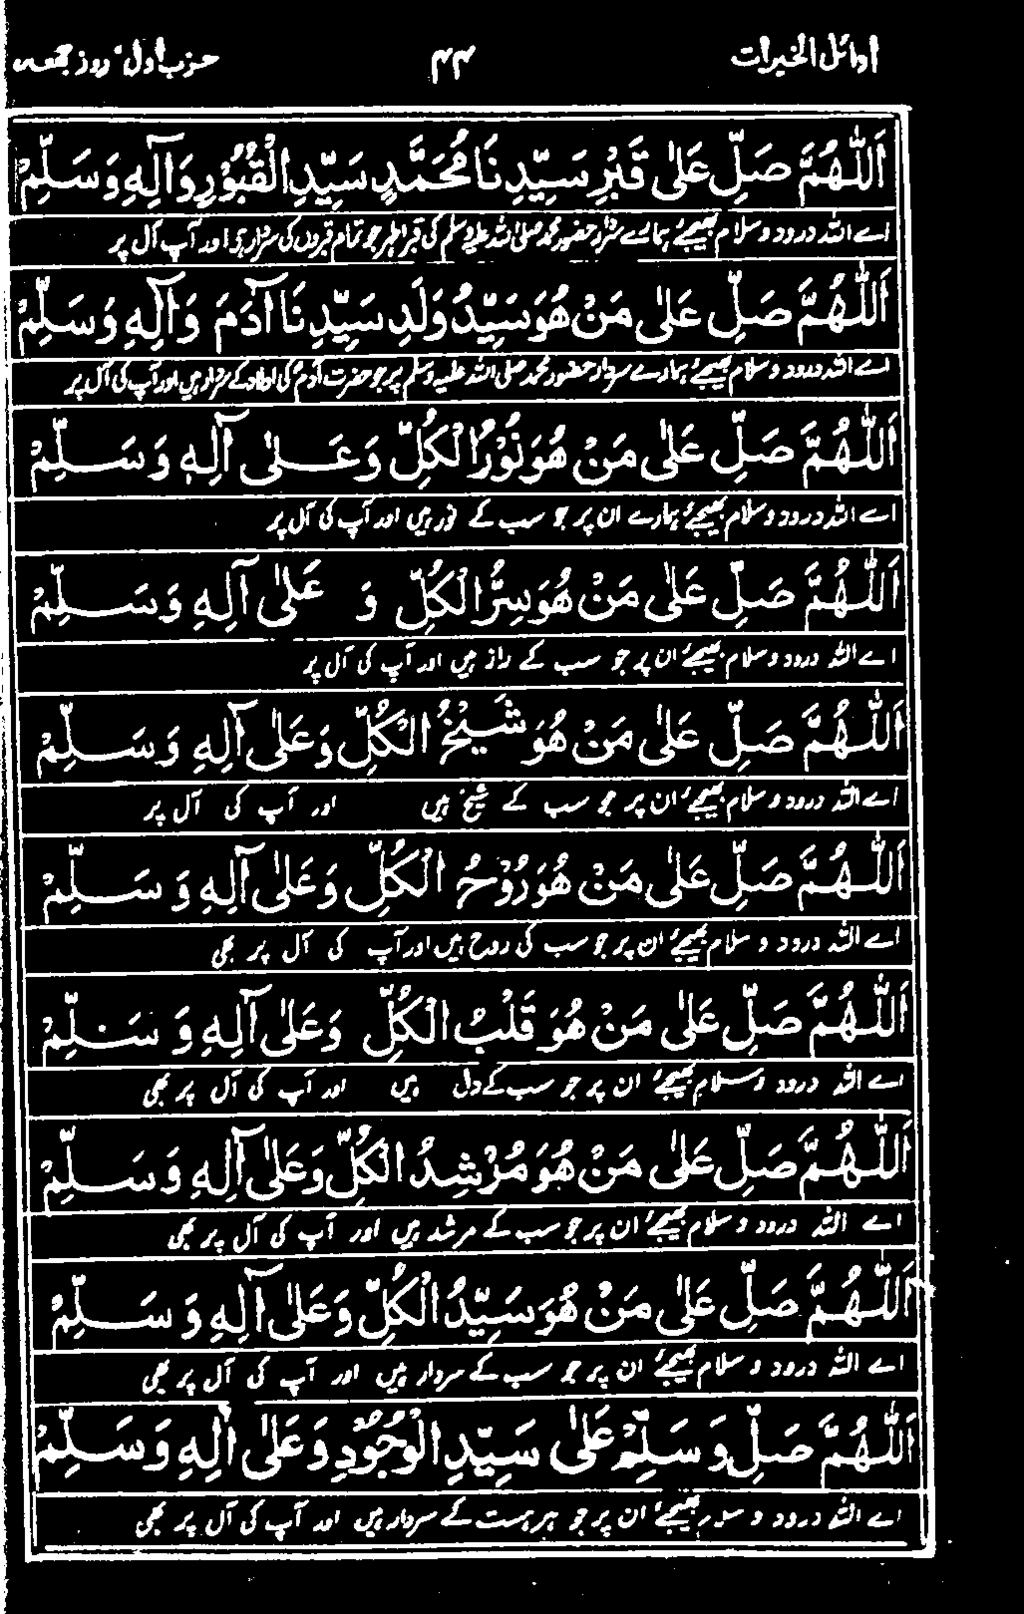 اوائل الخیرات ۴۴ حزب اول، روز جمعہ
اَللّٰهُمَّ صَلِّ عَلٰى قَبْرِ سَيِّدِنَا مُحَمَّدٍ سَيِّدِ الْقُبُوْرِ وَآلِهٖ وَسَلِّمْ
اے اللہ درود و سلام بھیجئے ہمارے سردار حضور محمد صلی اللہ علیہ وسلم کی قبر اطہر جو تمام قبروں کی سردار ہے اور آپ کی آل پر
اَللّٰهُمَّ صَلِّ عَلٰى مَنْ هُوَ سَيِّدُ وَلَدِ سَيِّدِنَا آدَمَ وَآلِهٖ وَسَلِّمْ
اے اللہ درود و سلام بھیجئے ہمارے سردار حضور محمد صلی اللہ علیہ وسلم پر جو حضرت آدمؑ کی اولاد کے سردار ہیں اور آپ کی آل پر
اَللّٰهُمَّ صَلِّ عَلٰى مَنْ هُوَ نُوْرُ الْكُلِّ وَعَلٰى آلِهٖ وَسَلِّمْ
اے اللہ درود و سلام بھیجئے ہمارے ان پر جو سب کے نور ہیں اور آپ کی آل پر
اَللّٰهُمَّ صَلِّ عَلٰى مَنْ هُوَ سِرُّ الْكُلِّ وَ عَلٰى آلِهٖ وَسَلِّمْ
اے اللہ درود و سلام بھیجئے ان پر جو سب کے راز ہیں اور آپ کی آل پر
اَللّٰهُمَّ صَلِّ عَلٰى مَنْ هُوَ شَيْخُ الْكُلِّ وَعَلٰى آلِهٖ وَسَلِّمْ
اے اللہ درود و سلام بھیجئے ان پر جو سب کے شیخ ہیں اور آپ کی آل پر
اَللّٰهُمَّ صَلِّ عَلٰى مَنْ هُوَ رُوْحُ الْكُلِّ وَعَلٰى آلِهٖ وَسَلِّمْ
اے اللہ درود و سلام بھیجئے ان پر جو سب کی روح ہیں اور آپ کی آل پر بھی
اَللّٰهُمَّ صَلِّ عَلٰى مَنْ هُوَ قَلْبُ الْكُلِّ وَعَلٰى آلِهٖ وَسَلِّمْ
اے اللہ درود و سلام بھیجئے ان پر جو سب کے دل ہیں اور آپ کی آل پر بھی
اَللّٰهُمَّ صَلِّ عَلٰى مَنْ هُوَ مُرْشِدُ الْكُلِّ وَعَلٰى آلِهٖ وَسَلِّمْ
اے اللہ درود و سلام بھیجئے ان پر جو سب کے مرشد ہیں اور آپ کی آل پر بھی
اَللّٰهُمَّ صَلِّ عَلٰى مَنْ هُوَ سَيِّدُ الْكُلِّ وَعَلٰى آلِهٖ وَسَلِّمْ
اے اللہ درود و سلام بھیجئے ان پر جو سب کے سردار ہیں اور آپ کی آل پر بھی
اَللّٰهُمَّ صَلِّ وَسَلِّمْ عَلٰى سَيِّدِ الْوُجُوْدِ وَعَلٰى آلِهٖ وَسَلِّمْ
اے اللہ درود و سلام بھیجئے ان پر جو ہر ہست کے سردار ہیں اور آپ کی آل پر بھی